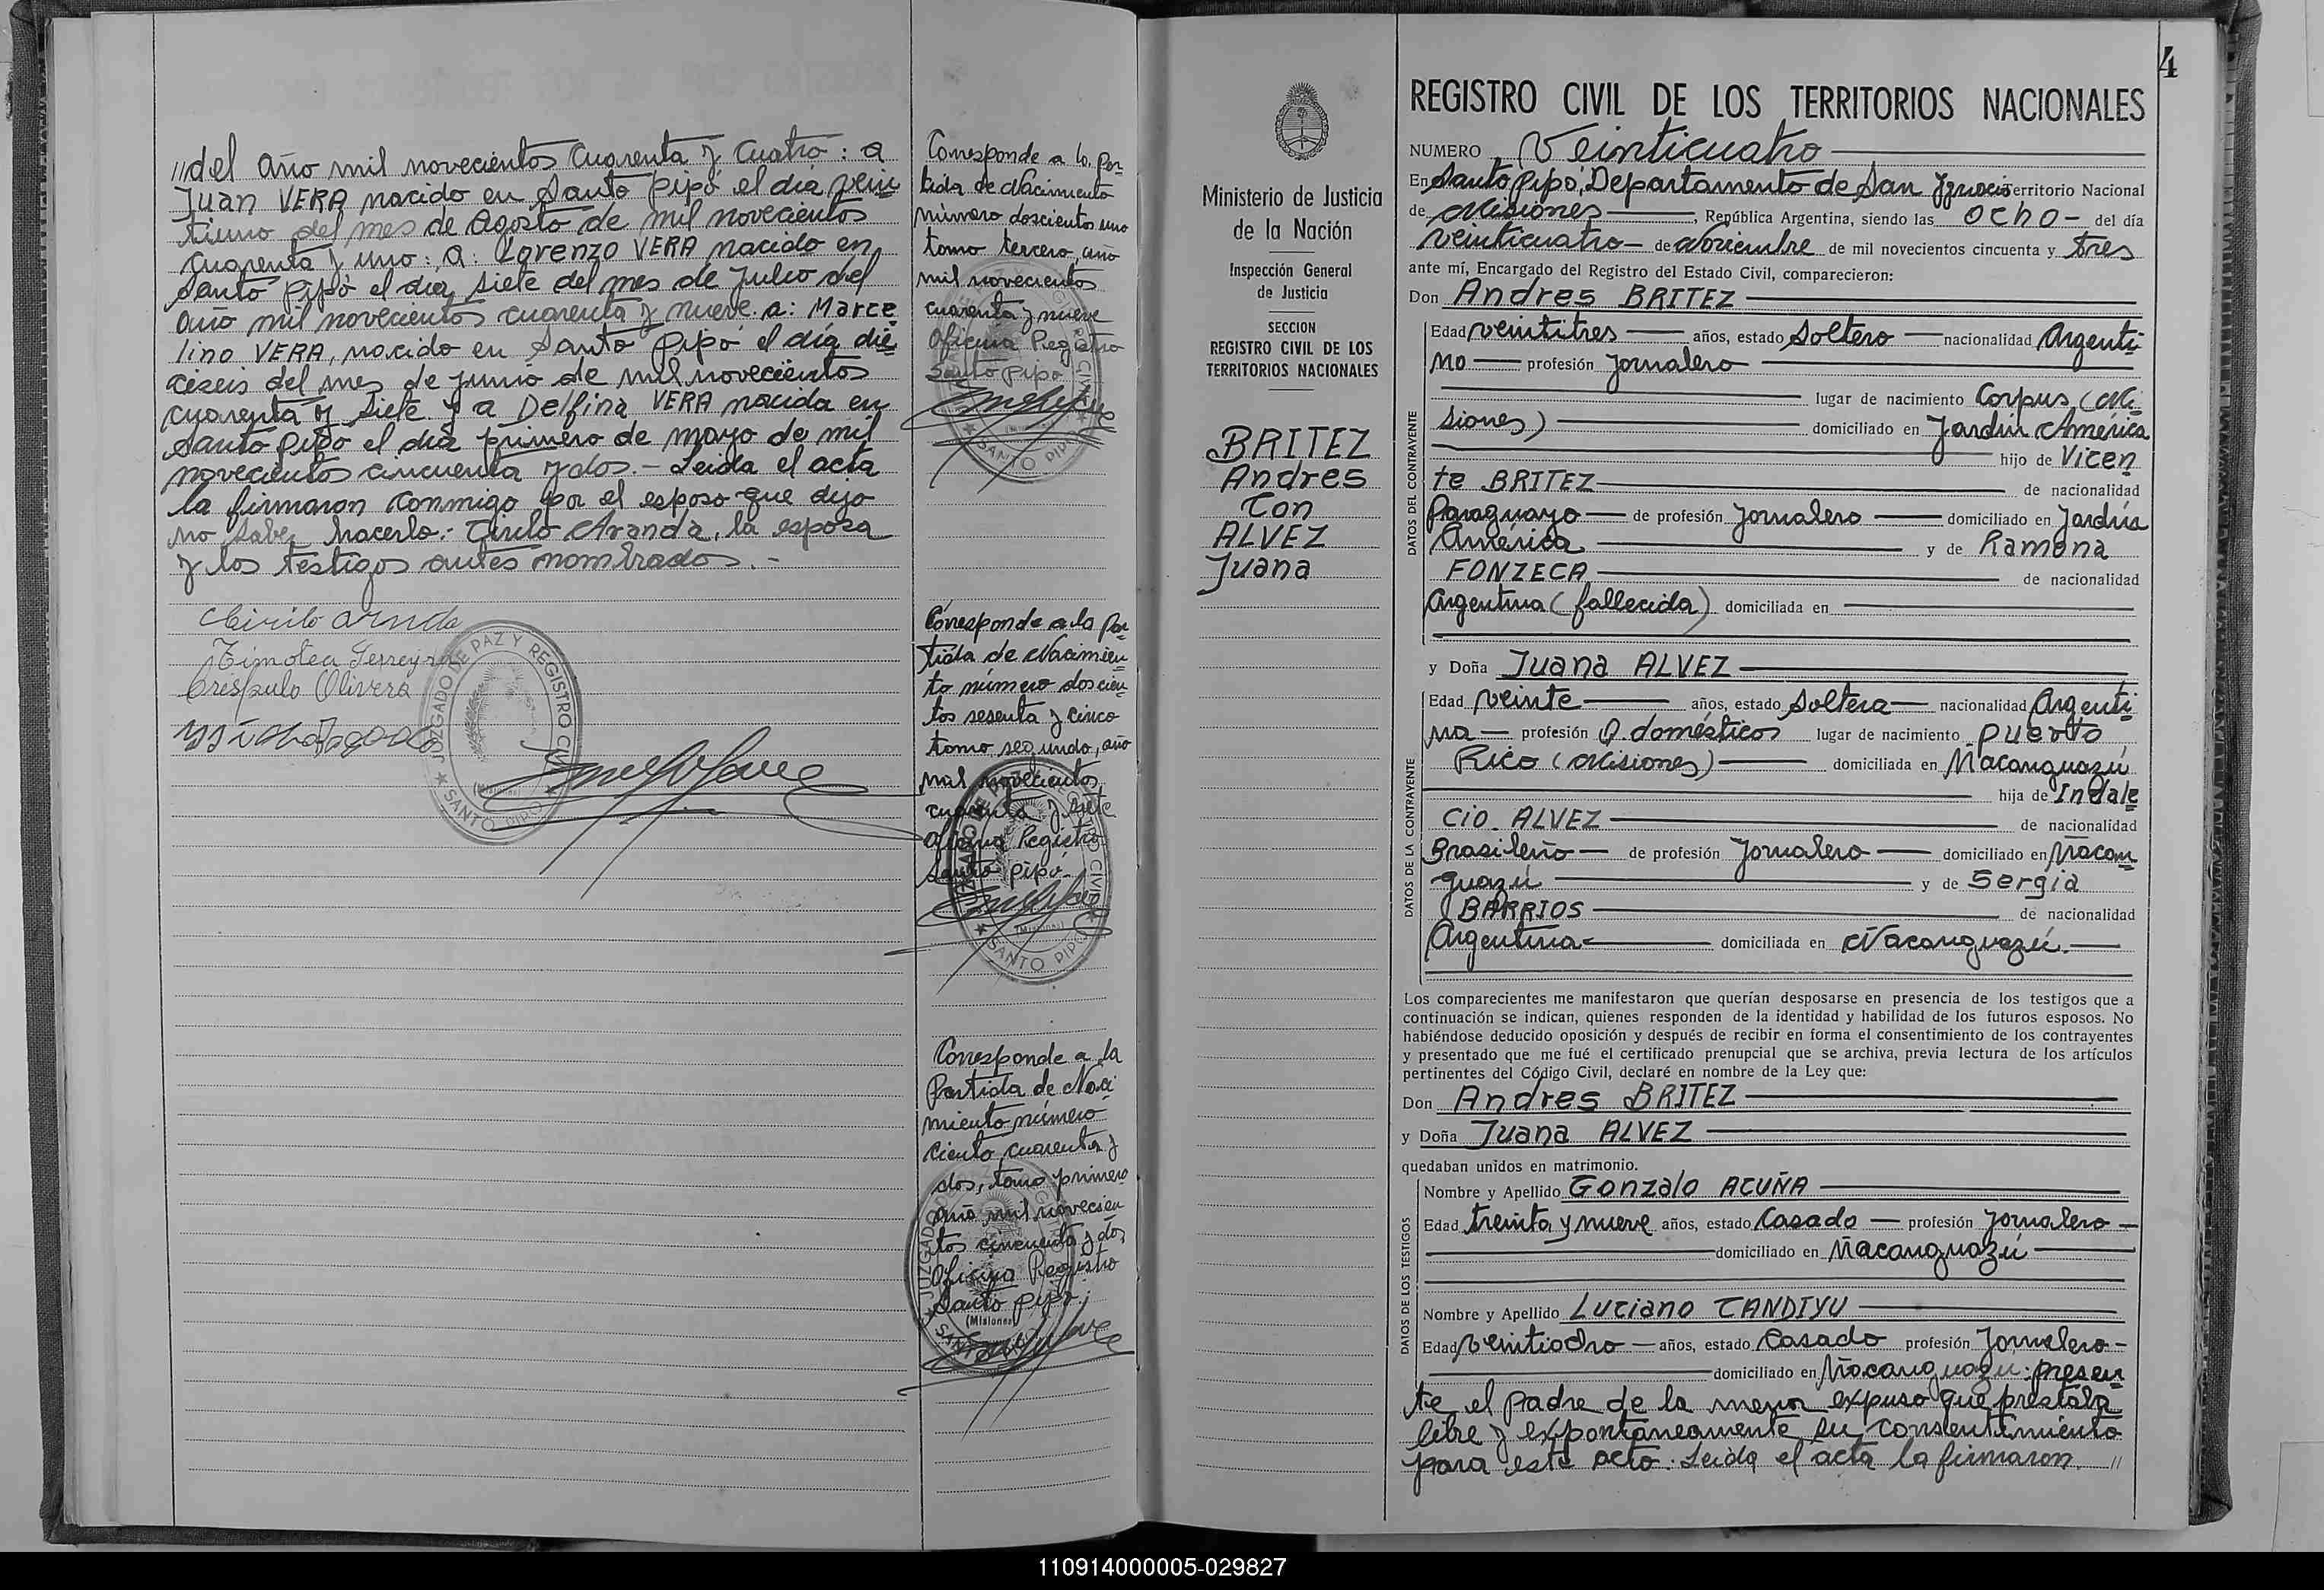 //del año mil novecientos cuarenta y cuatro: a
Juan VERA nacido en Santo Pipó el día vein
tiuno del mes de Agosto de mil novecientos
cuarenta y uno: a: Lorenzo VERA nacido en
Santo Pipó el día siete del mes de Julio del
año mil novecientos cuarenta y nueve. a: Marce
lino VERA, nacido en Santo Pipó el día die
ciseis del mes de junio de mil novecientos
cuarenta y siete y a Delfina VERA nacida en
Santo Pipó el día primero de mayo de mil
novecientos cincuenta y dos.- Leida el acta
la firmaron conmigo por el esposo que dijo
no saber hacerlo: Cirilo Aranda, la esposa
y los testigos antes nombrados.-
Cirilo Aranda
Timotea Ferreyra
Crispulo Olivera
JUZGADO DE PAZ Y REGISTRO CIVIL
(Misiones)
★ SANTO PIPÓ ★
Corresponde a la par-
tida de Nacimiento
número doscientos uno
tomo tercero, año
mil novecientos
cuarenta y nueve
Oficina Registro
Santo Pipó
SANTO PIPÓ
Corresponde a la Par
tida de Nacimien
to número doscien
tos sesenta y cinco
tomo segundo, año
mil novecientos
cuarenta y siete
Oficina Registro
Santo Pipó.
(Misiones)
★ SANTO PIPÓ ★
Corresponde a la
Partida de Naci
miento número
ciento cuarenta y
dos, tomo primero
año mil novecien
tos cincuenta y dos
Oficina Registro
Santo Pipó.
(Misiones)
Ministerio de Justicia
de la Nación
Inspección General
de Justicia
SECCION
REGISTRO CIVIL DE LOS
TERRITORIOS NACIONALES
BRITEZ
Andres
Con
ALVEZ
Juana
4
REGISTRO CIVIL DE LOS TERRITORIOS NACIONALES
NUMERO Veinticuatro
En Santo Pipó, Departamento de San Ygnacio Territorio Nacional
de Misiones, República Argentina, siendo las ocho - del día
veinticuatro - de Noviembre de mil novecientos cincuenta y tres
ante mí, Encargado del Registro del Estado Civil, comparecieron:
Don Andres BRITEZ
DATOS DEL CONTRAYENTE
Edad veintitres años, estado Soltero nacionalidad Argenti
no profesión Jornalero
lugar de nacimiento Corpus (Mi
siones) domiciliado en Jardin America
hijo de Vicen
te BRITEZ de nacionalidad
Paraguayo de profesión Jornalero domiciliado en Jardin
America y de Ramona
FONZECA de nacionalidad
Argentina (fallecida) domiciliada en
y Doña Juana ALVEZ
DATOS DE LA CONTRAYENTE
Edad veinte años, estado Soltera nacionalidad Argenti
na profesión Q. domésticos lugar de nacimiento Puerto
Rico (Misiones) domiciliada en Ñacanguazú
hija de Indale
cio ALVEZ de nacionalidad
Brasileño de profesión Jornalero domiciliado en Ñacan
guazú y de Sergia
BARRIOS de nacionalidad
Argentina domiciliada en Ñacanguazú.
Los comparecientes me manifestaron que querían desposarse en presencia de los testigos que a
continuación se indican, quienes responden de la identidad y habilidad de los futuros esposos. No
habiéndose deducido oposición y después de recibir en forma el consentimiento de los contrayentes
y presentado que me fué el certificado prenupcial que se archiva, previa lectura de los artículos
pertinentes del Código Civil, declaré en nombre de la Ley que:
Don Andres BRITEZ
y Doña Juana ALVEZ
quedaban unidos en matrimonio.
DATOS DE LOS TESTIGOS
Nombre y Apellido Gonzalo ACUÑA
Edad treinta y nueve años, estado Casado profesión Jornalero
domiciliado en Ñacanguazú
Nombre y Apellido Luciano CANDIYU
Edad veintiocho años, estado Casado profesión Jornalero -
domiciliado en Ñacanguazu: presen
te el padre de la menor expuso que prestaba
libre y expontaneamente su consentimiento
para este acto. Leida el acta la firmaron //
110914000005-029827